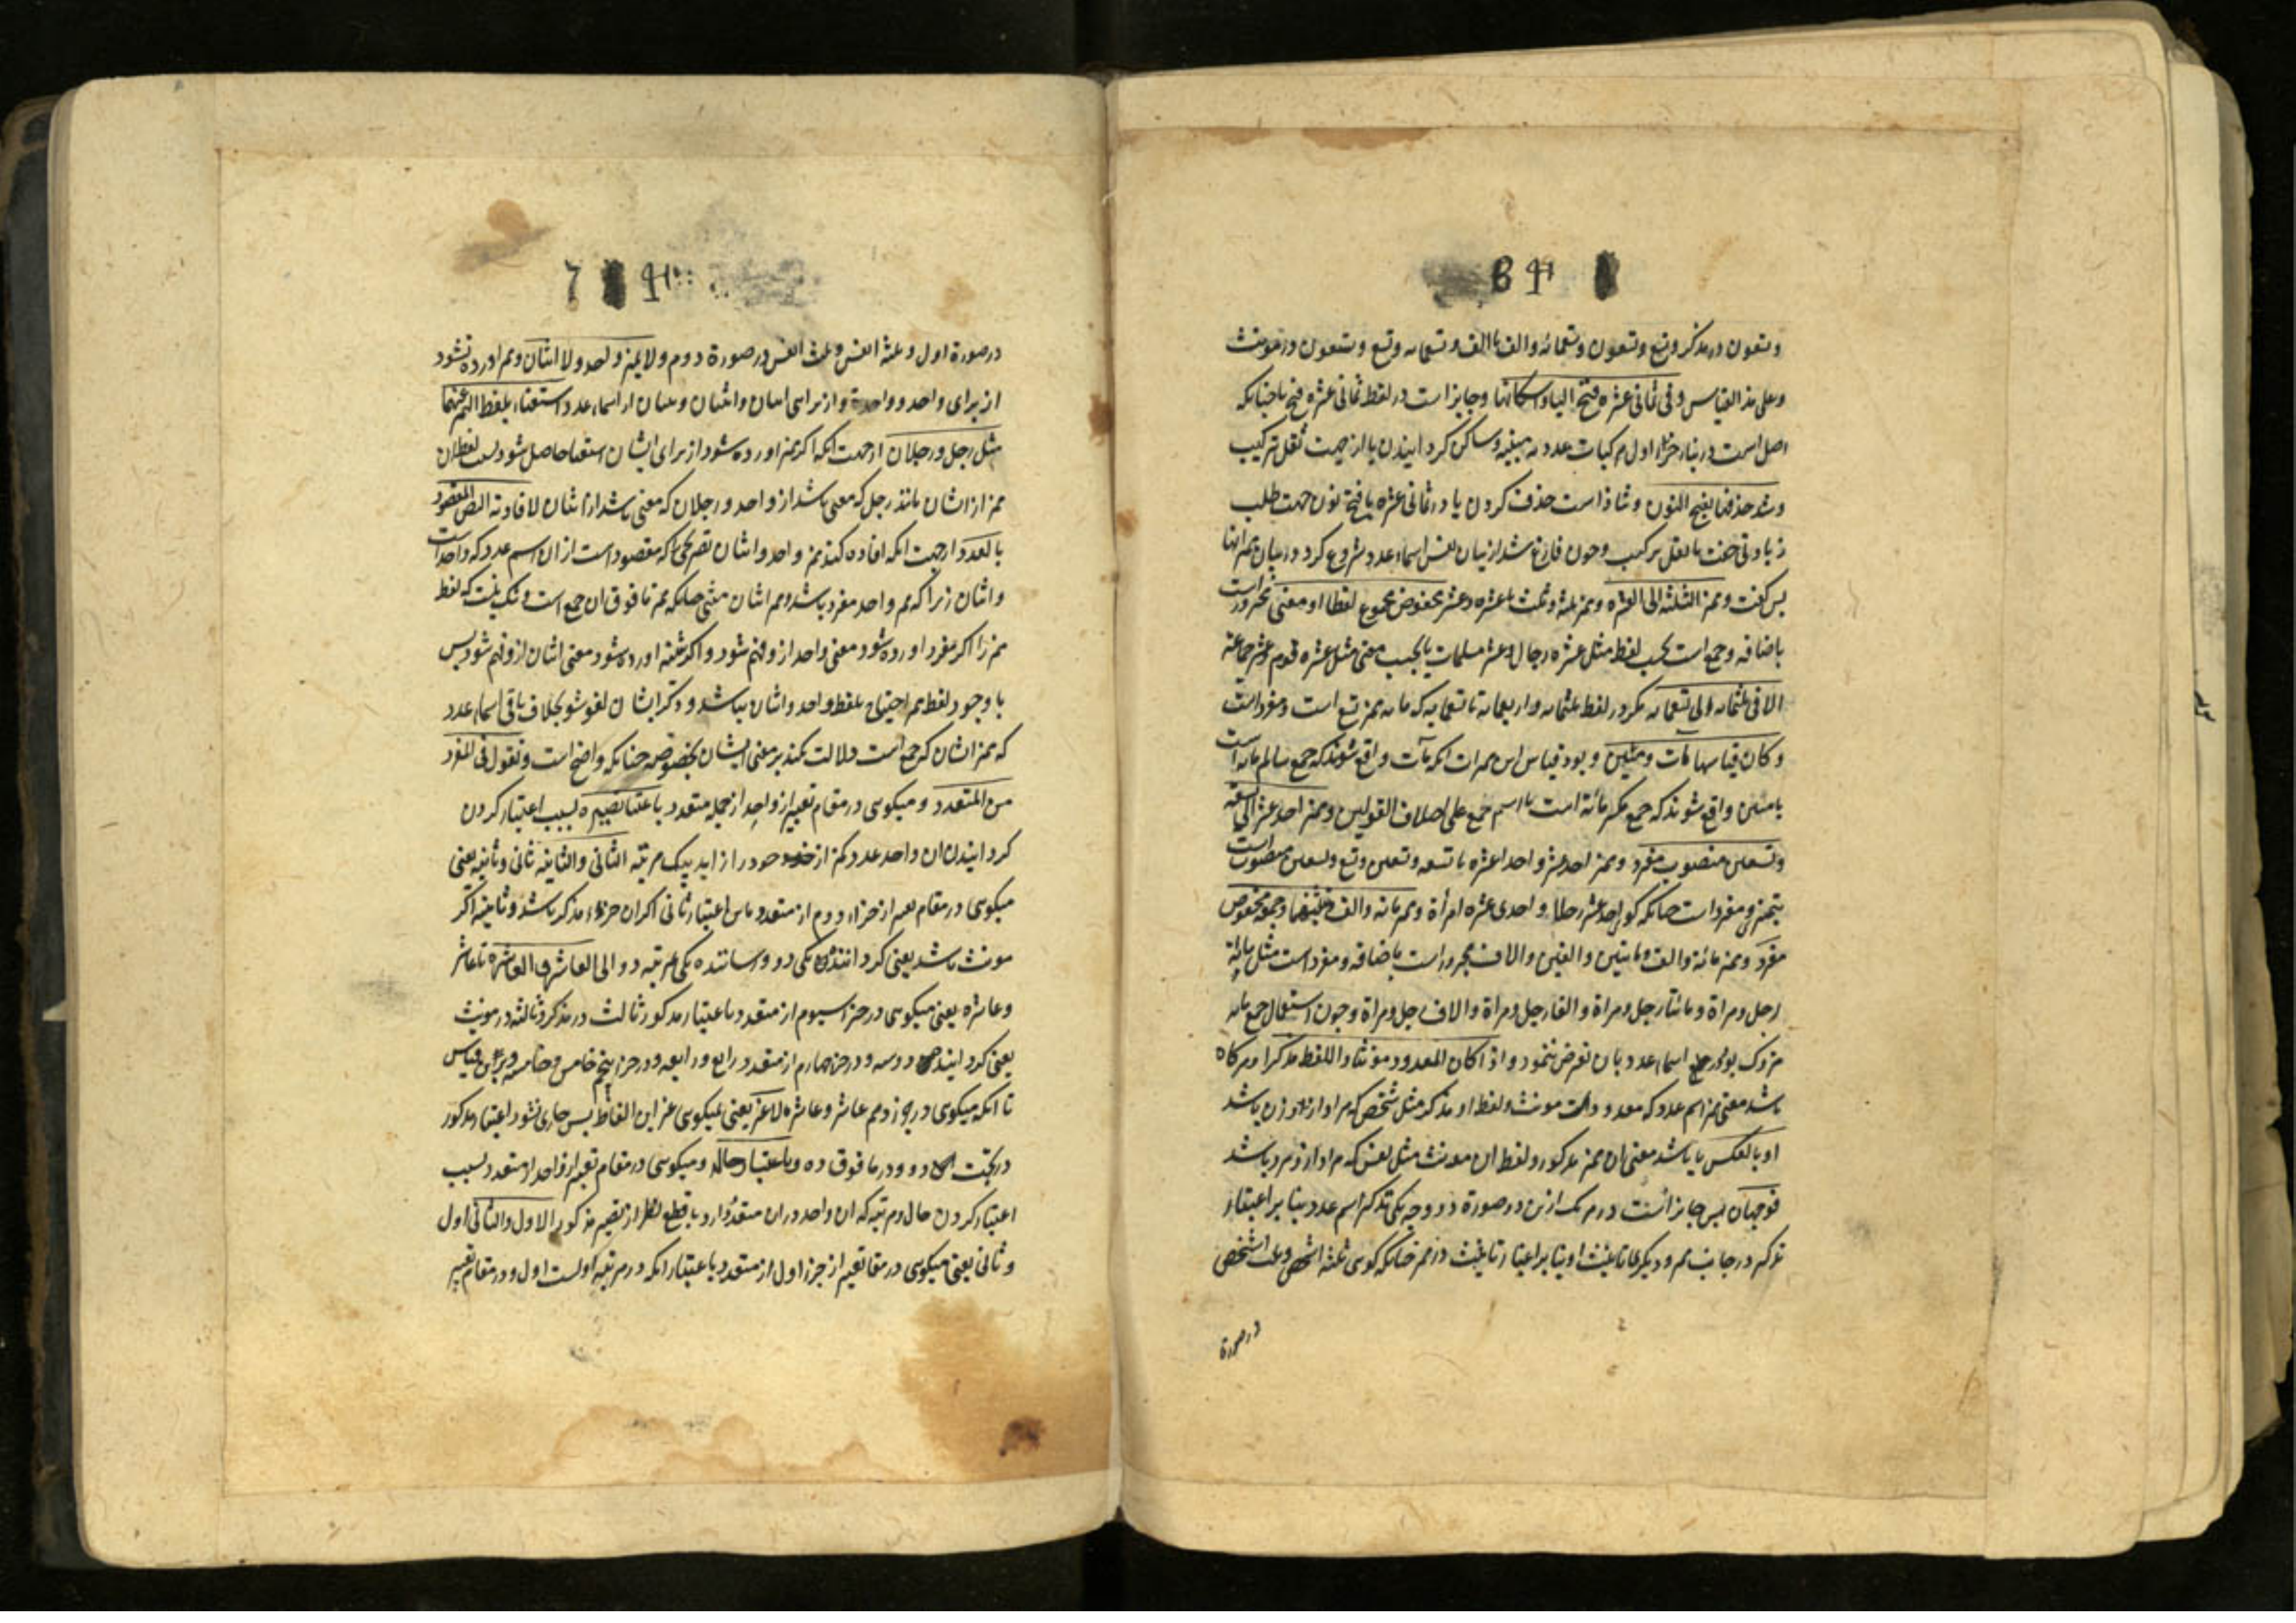 وتسعون در مذکر وتسع وتسعون وتسعمائه والف یا الف وتسعمایه وتسع وتسعون در مونث
وعلی هذا القیاس وفی ثمانی عشره فتح الیاء واسکانها وجایز است در لفظ ثمانی عشره فتح یا چنانکه
اصل است در بناء جزء اول مرکبات عدد مبنیه وساکن کردانیدن یا از جهت ثقل ترکیب
وشذ حذفها بفتح النون وشاذ است حذف کردن یا در ثمانی عشره با فتح نون جهت طلب
زیادتی خفت با ثقل ترکیب وچون فارغ شد از بیان نفس اسماء عدد شروع کرد در بیان ممیز انها
پس گفت وممیز الثلثه الی العشره وممیز ثلثه وثلث تا عشره وعشر مخفوض مجموع لفظا او معنی مجرور است
باضافه وجمع است بحسب لفظ مثل عشره رجال وعشر مسلمات یا بحسب معنی مثل عشره قوم وعشر جماعة
الا فی ثلثمایه الی تسعمایه مگر در لفظ ثلثمایه واربعمایه تا تسعمایه که مایه ممیز تسع است ومفرد است
وکان قیاسها مآت ومئین وبود قیاس این ممیزات انکه مآت واقع شوند که جمع سالم مایه است
یا مئین واقع شوند که جمع مکسر مائة است یا اسم جمع علی اختلاف القولین وممیز احد عشر الی تسعة
وتسعین منصوب مفرد وممیز احد عشر واحد اعشره تا تسعه وتسعین وتسع وتسعین منصوب است
بتمیز ومفرد است چنانکه کوئی احد عشر رجلا واحدی عشره امرأة وممیز مائة والف وتثنیتهما وجمعه مخفوض
مفرد وممیز مائة والف ومایتین والفین والاف مجرور است باضافه ومفرد است مثل مایة
رجل ومراة ومائتا رجل ومراة والفا رجل ومراة والاف رجل ومراة وچون استعمال جمع مایه
متروک بود در جمیع اسماء عدد بان تعرض ننمود واذا کان المعدود مونثا واللفظ مذکرا وهرکاه
باشد معنی ممیز اسم عدد که معدود است مونث ولفظ او مذکر مثل شخص که مراد از او زن باشد
او بالعکس یا باشد معنی ان ممیز مذکور ولفظ ان مونث مثل نفس که مراد از او مرد باشد
فوجهان پس جایز است در هر یک از این دو صورة دو وجه یکی تذکیر اسم عدد بنا بر اعتبار
تذکیر در جانب ممیز ودیکری تانیث او بنا بر اعتبار تانیث در ممیز چنانکه کوئی ثلثه اشخص وثلث اشخص
در صورة
در صورة اول وثلثه انفس وثلث انفس در صورة دوم ولا یمیز واحد ولا اثنان وممیز اورده نشود
از برای واحد وواحدة واز برای اثنان واثنتان وثنتان از اسماء عدد استغناء بلفظ الممیز عنهما
مثل رجل ورجلان از جهت انکه اکر ممیز اورده شود از برای ایشان استغنا حاصل شود بسبب لفظ ان
ممیز از ایشان مانند رجل که مغنی باشد از واحد ورجلان که مغنی باشد از اثنان لافادته النص المقصود
بالعدد از جهت انکه افاده کند ممیز واحد واثنان تصریحی را که مقصود است از ان اسم عدد که واحد است
واثنان زیرا که ممیز واحد مفرد باشد وممیز اثنان مثنی چنانکه ممیز ما فوق ان جمع است وشک نیست که لفظ
ممیز را اکر مفرد اورده شود معنی واحد از او فهم شود واکر تثنیه اورده شود معنی اثنان از او فهم شود پس
با وجود لفظ ممیز احتیاج بلفظ واحد واثنان نباشد وذکر ایشان لغو شود بخلاف باقی اسماء عدد
که ممیز ایشان که جمع است دلالت نمیکند بر معنی ایشان بخصوصه چنانکه واضح است وتقول فی المفرد
من المتعدد ومیکوئی در مقام تعبیر از واحد از جمله متعدد باعتبار تصییره بسبب اعتبار کردن
کردانیدن ان واحد عدد کمتر از خود را زاید بیک مرتبه الثانی والثانیه ثانی وثانیه یعنی
میکوئی در مقام تعبیر از جزء دوم از متعدد باین اعتبار ثانی اکر ان جزء مذکر باشد وثانیه اکر
مونث باشد یعنی کرداننده یکی دو ورساننده یکی بمرتبه دو الی العاشر والعاشره تا عاشر
وعاشره یعنی میکوئی در جزء سیوم از متعدد باعتبار مذکور ثالث در مذکر وثالثه در مونث
یعنی کرداننده دو سه ودر جزء چهارم از متعدد رابع ورابعه ودر جزء پنجم خامس وخامسه وبر این قیاس
تا انکه میکوئی در جزء دهم عاشر وعاشره لا غیر یعنی نمیکوئی غیر این الفاظ پس جاری نشود اعتبار مذکور
در تحت دو ودر ما فوق ده وباعتبار حاله ومیکوئی در مقام تعبیر از واحد از متعدد بسبب
اعتبار کردن حال ومرتبه که ان واحد در ان متعدد دارد با قطع نظر از تصییر مذکور الاول والثانی اول
وثانی یعنی میکوئی در مقام تعبیر از جزء اول از متعدد باعتبار انکه در مرتبه اولست اول ودر مقام تعبیر